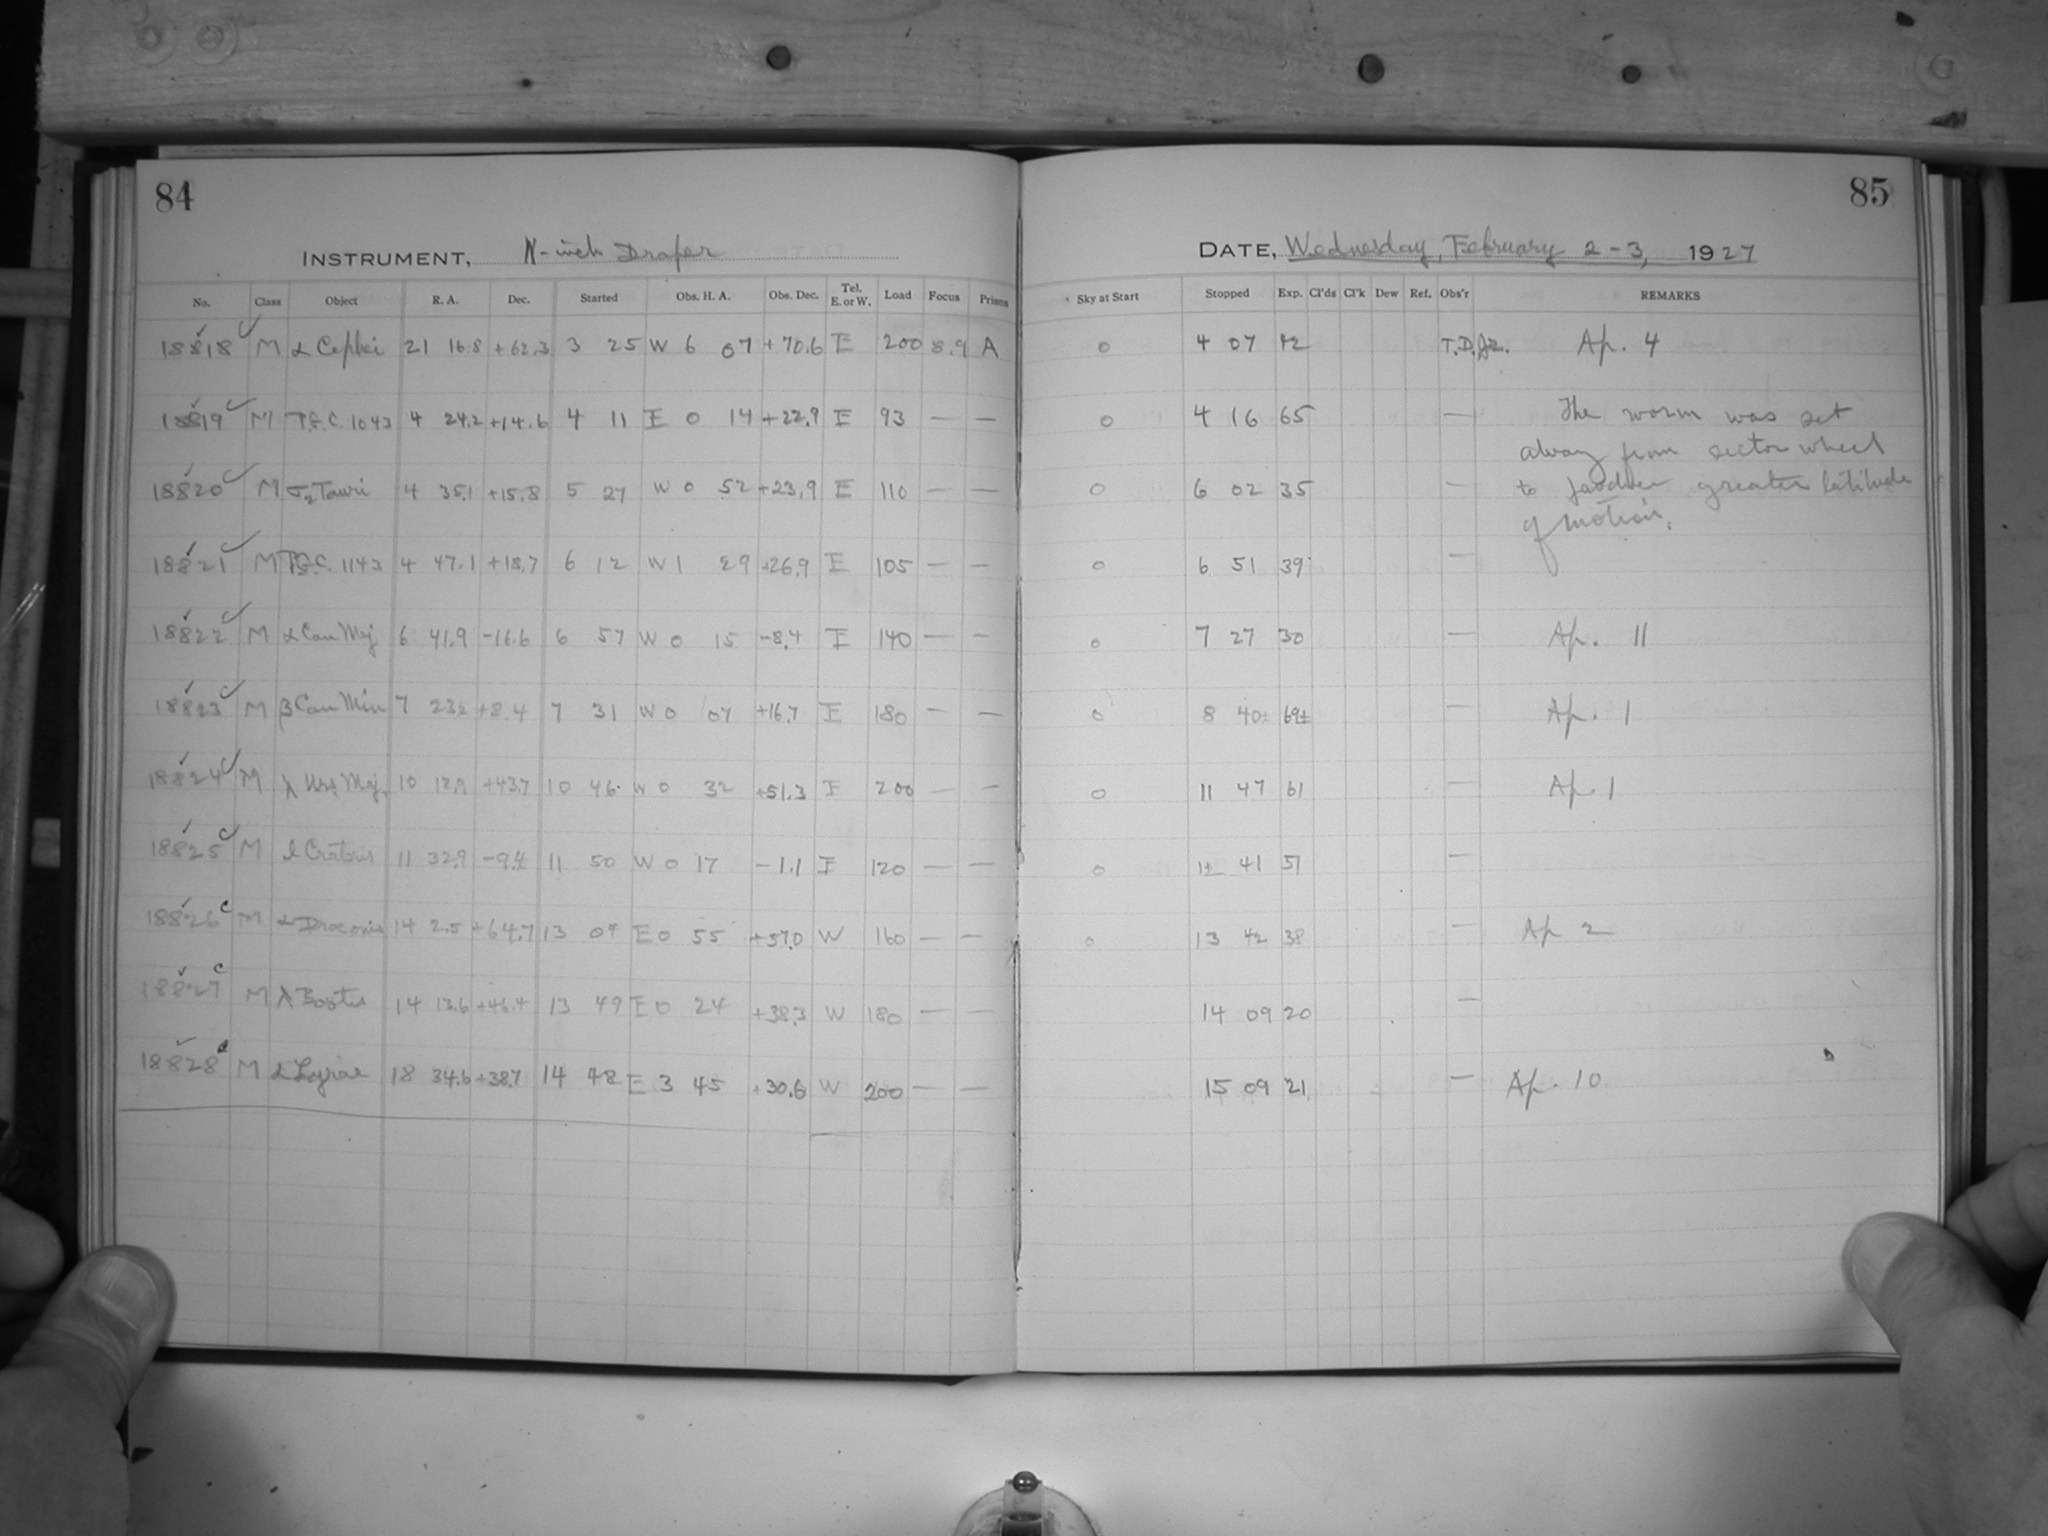 84
INSTRUMENT, 11-inch Draper
No. Class Object R. A. Dec. Started Obs. H. A. Obs. Dec. Tel. E. or W. Load Focus Prisms
18818 M α Cephei 21 16.8 +62.3 3 25 W 6 07 +70.6 E 200 8.9 A
18819 M T.G.C. 1043 4 24.2 +14.6 4 11 E 0 14 +22.9 E 93 — —
18820 M σ2 Tauri 4 35.1 +15.8 5 27 W 0 52 +23.9 E 110 — —
18821 M T.G.C. 1143 4 47.1 +18.7 6 12 W 1 29 +26.9 E 105 — —
18822 M α Can Maj 6 41.9 -16.6 6 57 W 0 15 -8.4 E 140 — —
18823 M β Can Min 7 23.2 +8.4 7 31 W 0 07 +16.7 E 180 — —
18824 M λ Urs Maj. 10 12.9 +43.7 10 46 W 0 32 +51.3 E 200 — —
18825 M Crateris 11 32.9 -9.4 11 50 W 0 17 -1.1 E 120 — —
18826 M α Draconis 14 2.5 +64.7 13 04 E 0 55 +57.0 W 160 — —
18827 M λ Bootis 14 13.6 +46.4 13 49 E 0 24 +38.3 W 180 — —
18828 M α Lyrae 18 34.6 +38.7 14 48 E 3 45 +30.6 W 200 — —
85
DATE, Wednesday, February 2-3, 1927
Sky at Start Stopped Exp. Cl'ds Cl'k Dew Ref. Obs'r REMARKS
0 4 07 42 T.D.Jr. Ap. 4
0 4 16 65 — The worm was set
away from sector wheel
0 6 02 35 — to greater latitude
of motion.
0 6 51 39 —
0 7 27 30 — Ap. 11
0 8 40± 69± — Ap. 1
0 11 47 61 — Ap. 1
0 12 41 51 —
0 13 42 38 — Ap 2
14 09 20 —
15 09 21 — Ap. 10